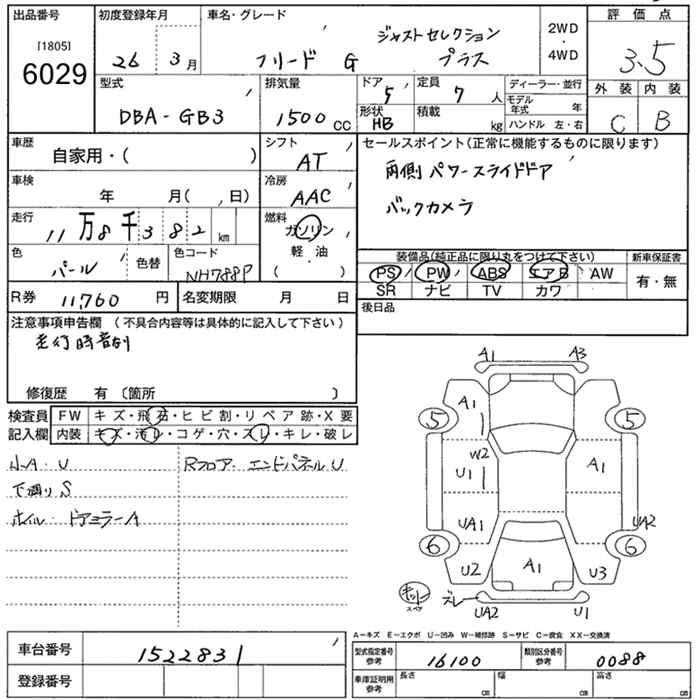 出品番号
[1805]
6029
初度登録年月
26 3月
車名・グレード
フリード G ジャストセレクション
プラス
2WD
・
4WD
評価点
3.5
外装 内装
C B
型式
DBA-GB3
排気量
1500 cc
ドア 5
定員 7 人
形状 HB
積載 kg
ディーラー・並行
モデル年式 年
ハンドル 左・右
車歴
自家用・( )
シフト
AT
車検
年 月( 、日)
冷房
AAC
走行
11万8千382 km
燃料
ガソリン
軽・油
( )
色
パール
色替
色コード
NH788P
R券 11,760 円
名変期限 月 日
セールスポイント(正常に機能するものに限ります)
両側パワースライドドア
バックカメラ
装備品(純正品に限り丸をつけて下さい)
PS PW ABS エアB AW
SR ナビ TV カワ
新車保証書
有・無
後日品
注意事項申告欄 (不具合内容等は具体的に記入して下さい)
走行時音別
修復歴 有 〔箇所 〕
検査員
記入欄
FW キズ・飛石・ヒビ割・リペア跡・X要
内装 キズ・汚レ・コゲ・穴・スレ・キレ・破レ
小A・U
下廻りS
ホイル・ドアミラーA
Rフロア・エンドパネルU
A1 A3
A1
5 5
W2
U1 A1
UA1 UA2
6 6
U2 A1 U3
キット
スペア
ズレ
UA2 U1
A-キズ E-エクボ U-凹み W-補修跡 S-サビ C-腐食 XX-交換済
車台番号 1522831
登録番号
型式指定番号
参考
16100
類別区分番号
参考
0088
車庫証明用
参考
長さ cm
幅 cm
高さ cm